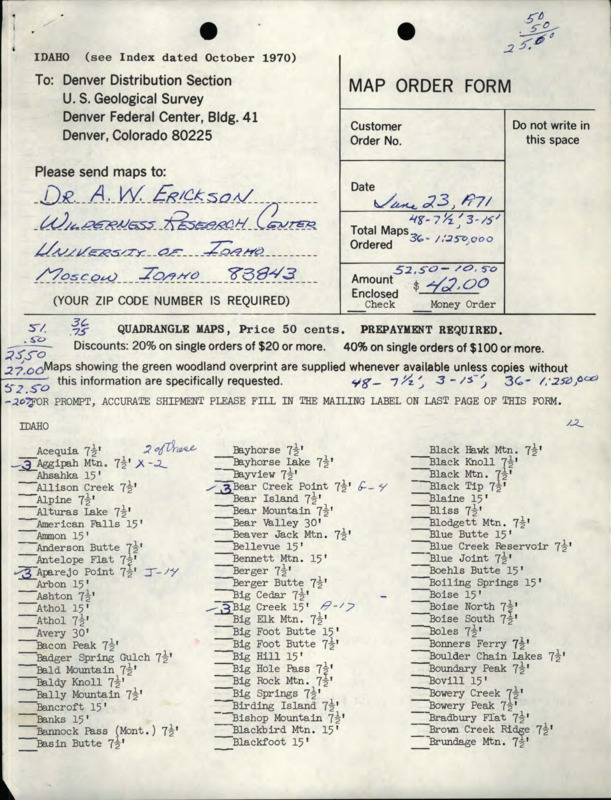 50
.50
25.00
IDAHO (see Index dated October 1970)
To: Denver Distribution Section
U. S. Geological Survey
Denver Federal Center, Bldg. 41
Denver, Colorado 80225
MAP ORDER FORM
Customer
Order No.
Do not write in
this space
Please send maps to:
DR A. W. ERICKSON
WILDERNESS RESEARCH CENTER
UNIVERSITY OF IDAHO
MOSCOW IDAHO 83843
(YOUR ZIP CODE NUMBER IS REQUIRED)
Date
June 23, 1971
48-7½', 3-15'
Total Maps
Ordered
36-1:250,000
52.50-10.50
Amount
Enclosed
$ 42.00
Check Money Order
51.
.50
25,50
27.00
52.50
-20%
36
.75
QUADRANGLE MAPS, Price 50 cents. PREPAYMENT REQUIRED.
Discounts: 20% on single orders of $20 or more. 40% on single orders of $100 or more.
Maps showing the green woodland overprint are supplied whenever available unless copies without
this information are specifically requested.
48- 7½', 3-15', 36- 1:250,000
FOR PROMPT, ACCURATE SHIPMENT PLEASE FILL IN THE MAILING LABEL ON LAST PAGE OF THIS FORM.
IDAHO
12
Acequia 7½' 2 of these
3 Aggipah Mtn. 7½' X-2
Ahsahka 15'
Allison Creek 7½'
Alpine 7½'
Alturas Lake 7½'
American Falls 15'
Ammon 15'
Anderson Butte 7½'
Antelope Flat 7½'
3 Aparejo Point 7½' J-14
Arbon 15'
Ashton 7½'
Athol 15'
Athol 7½'
Avery 30'
Bacon Peak 7½'
Badger Spring Gulch 7½'
Bald Mountain 7½'
Baldy Knoll 7½'
Bally Mountain 7½'
Bancroft 15'
Banks 15'
Bannock Pass (Mont.) 7½'
Basin Butte 7½'
Bayhorse 7½'
Bayhorse Lake 7½'
Bayview 7½'
3 Bear Creek Point 7½' G-4
Bear Island 7½'
Bear Mountain 7½'
Bear Valley 30'
Beaver Jack Mtn. 7½'
Bellevue 15'
Bennett Mtn. 15'
Berger 7½'
Berger Butte 7½'
Big Cedar 7½'
3 Big Creek 15' A-17
Big Elk Mtn. 7½'
Big Foot Butte 15'
Big Foot Butte 7½'
Big Hill 15'
Big Hole Pass 7½'
Big Rock Mtn. 7½'
Big Springs 7½'
Birding Island 7½'
Bishop Mountain 7½'
Blackbird Mtn. 15'
Blackfoot 15'
Black Hawk Mtn. 7½'
Black Knoll 7½'
Black Mtn. 7½'
Black Tip 7½'
Blaine 15'
Bliss 7½'
Blodgett Mtn. 7½'
Blue Butte 15'
Blue Creek Reservoir 7½'
Blue Joint 7½'
Boehls Butte 15'
Boiling Springs 15'
Boise 15'
Boise North 7½'
Boise South 7½'
Boles 7½'
Bonners Ferry 7½'
Boulder Chain Lakes 7½'
Boundary Peak 7½'
Bovill 15'
Bowery Creek 7½'
Bowery Peak 7½'
Bradbury Flat 7½'
Brown Creek Ridge 7½'
Brundage Mtn. 7½'